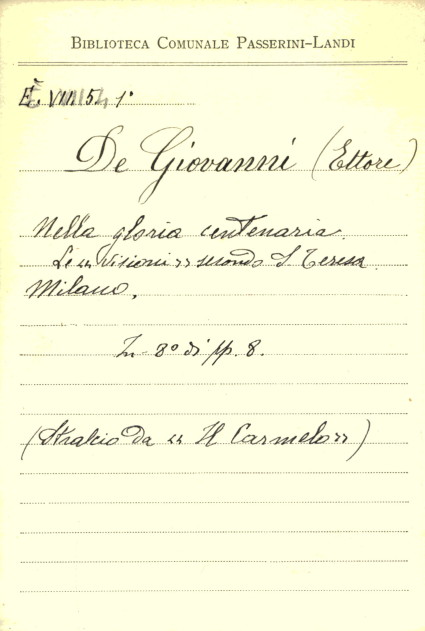 BIBLIOTECA COMUNALE PASSERINI-LANDI
E. VIII 5. 1°
De Giovanni (Ettore)
Nella gloria centenaria.
Le « Visioni » secondo S. Teresa.
Milano,
In-8° di pp. 8.
(Stralcio da « Il Carmelo »)